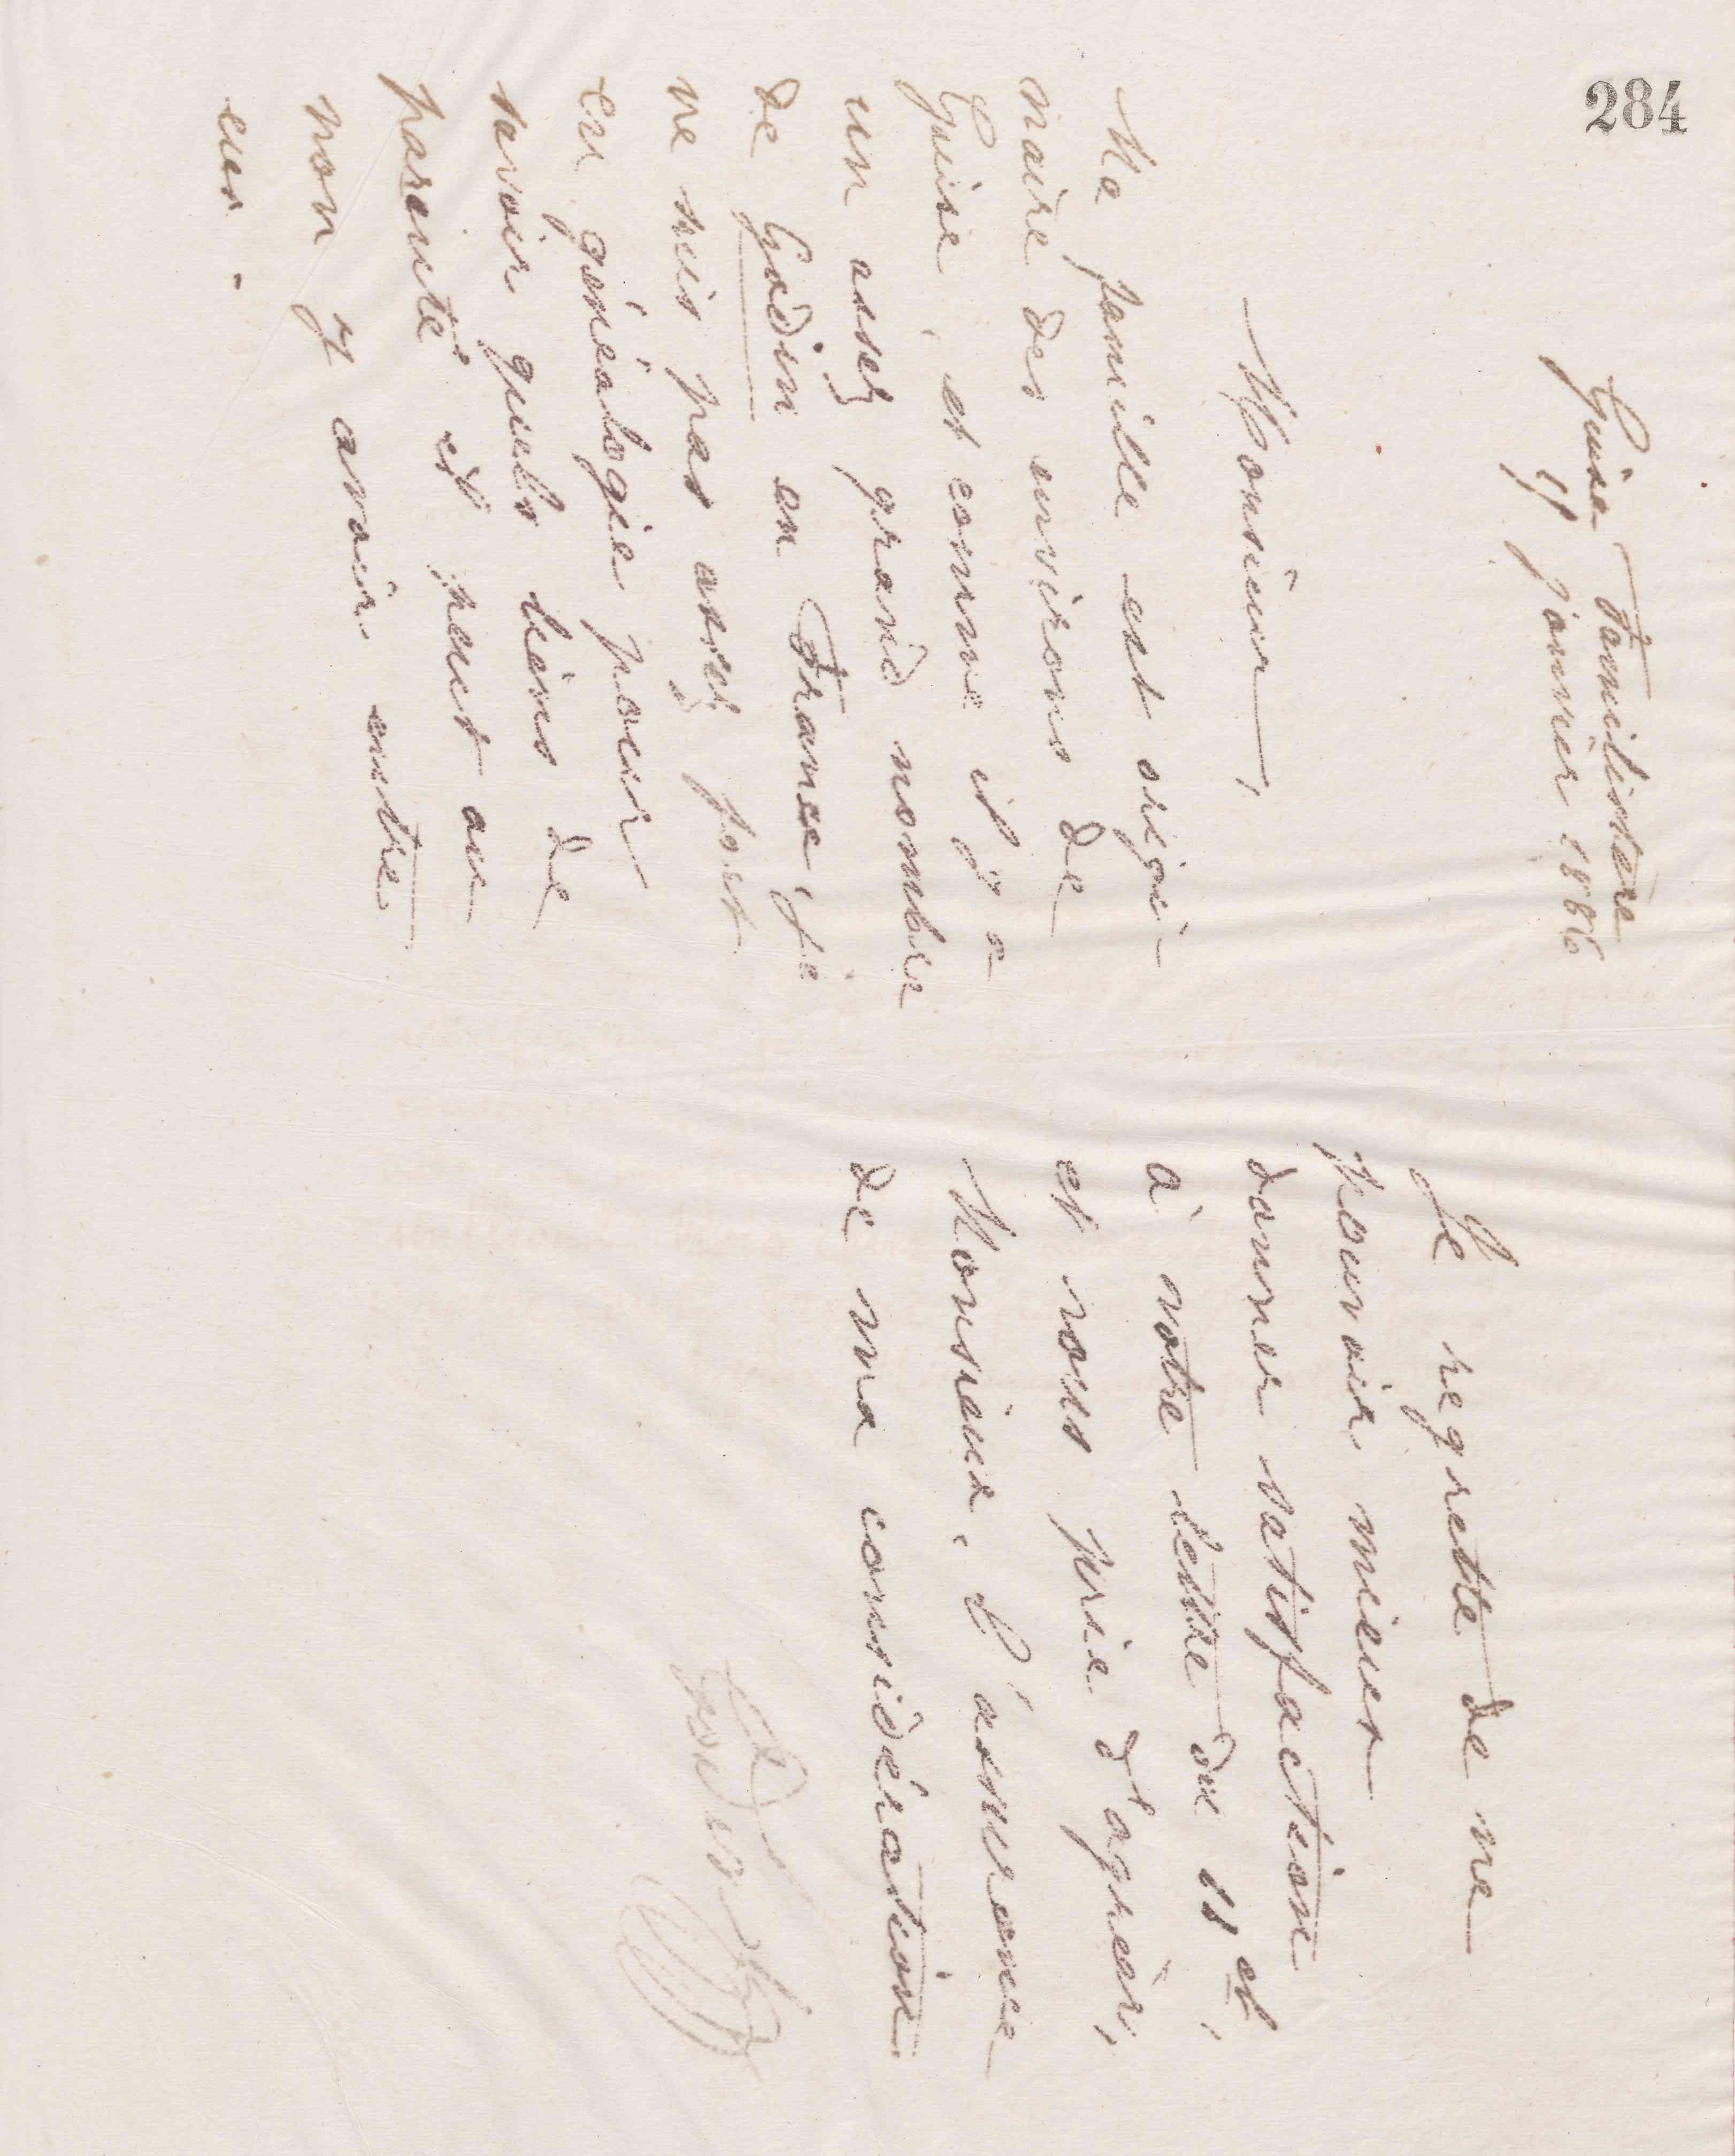 284
Guise Familistère
15 janvier 1886
Monsieur,
Ma famille est origi-
naire des environs de
Guise, et comme il y a
un assez grand nombre
de Godin en France, je
ne suis pas assez fort
en généalogie pour
savoir quels liens de
parenté il peut ou
non y avoir entre
eux.
Je regrette de ne
pouvoir mieux
donner satisfaction
à votre lettre du 11 et,
et vous prie d'agréer,
Monsieur, l'assurance
de ma considération.
Godin